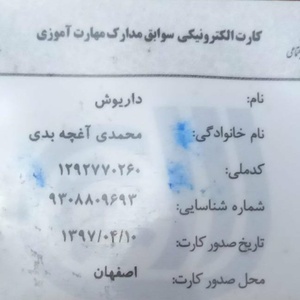 کارت الکترونیکی سوابق مدارک مهارت آموزی
نام: داریوش
نام خانوادگی: محمدی آغچه بدی
کدملی: ۱۲۹۲۷۷۰۲۶۰
شماره شناسایی: ۹۳۰۸۸۰۹۶۹۳
تاریخ صدور کارت: ۱۳۹۷/۰۴/۱۰
محل صدور کارت: اصفهان